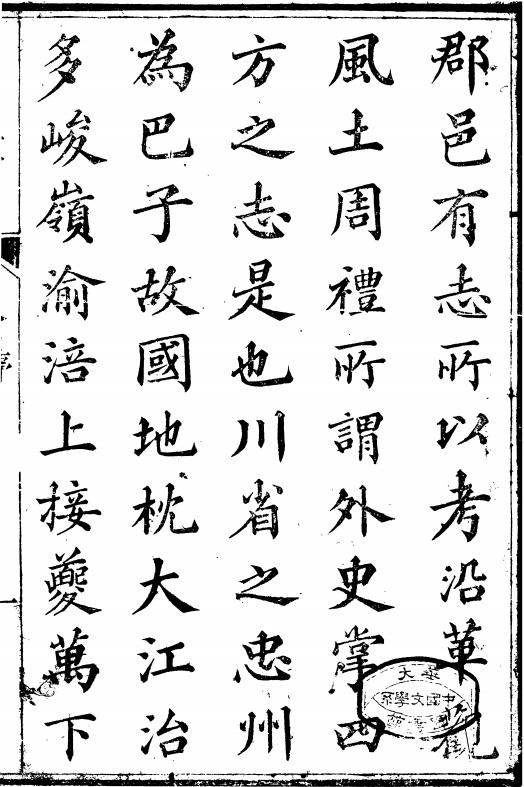 郡邑有志所以考沿革觀
風土周禮所謂外史掌四
方之志是也川省之忠州
為巴子故國地枕大江治
多峻嶺渝涪上接夔萬下
序